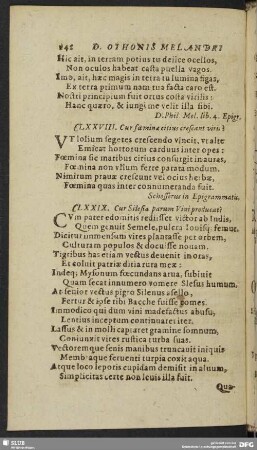 642 D. OTHONIS MELANDRI
Hic ait, in terram potius tu deiice ocellos,
Non oculos habeat casta puella vagos.
Imò, ait, hæc magis in terra tu lumina figas,
Ex terra primum nam tua facta caro est.
Nostri principium fuit ortus costa virilis:
Hanc quæro, & jungi me velit illa sibi.
D. Phil. Mel. lib. 4. Epigr.
CLXXVIII. Cur fœmina citius crescant viris?
VT lolium segetes crescendo vincit, vt alte
Emicat hortorum carduus inter opes:
Fœmina sic maribus citius consurgit in auras,
Fœmina non vllum ferre parata modum.
Nimirum prauæ crescunt velocius herbæ,
Fœmina quas inter connumeranda fuit.
Schosserus in Epigrammatis.
CLXXIX. Cur Silesia parum Vini producat?
CVm pater edomitis redisset victor ab Indis,
Quem genuit Semele, pulcra Iouisq; femur.
Dicitur immensum vites plantasse per orbem,
Culturam populos & docuisse nouam.
Tigribus has etiam vectus deuenit in oras,
Et coluit patriæ ditia rura meæ:
Indeq; Mysorum fœcundans arua, subiuit
Quam secat innumero vomere Slesus humum.
At senior vectus pigro Silenus asello,
Fertur & ipse tibi Bacche fuisse comes.
Immodico qui dum vini madefactus abusu,
Lentius inceptum continuaret iter.
Lassus & in molli captaret gramine somnum,
Coniunxit vires rustica turba suas.
Vectoremque senis manibus truncauit iniquis
Membraque feruenti turpia coxit aqua.
Atque loco leporis cupidam demisit in aluum,
Simplicitas certe non leuis illa fuit.
Quo-
SLUB
DFG